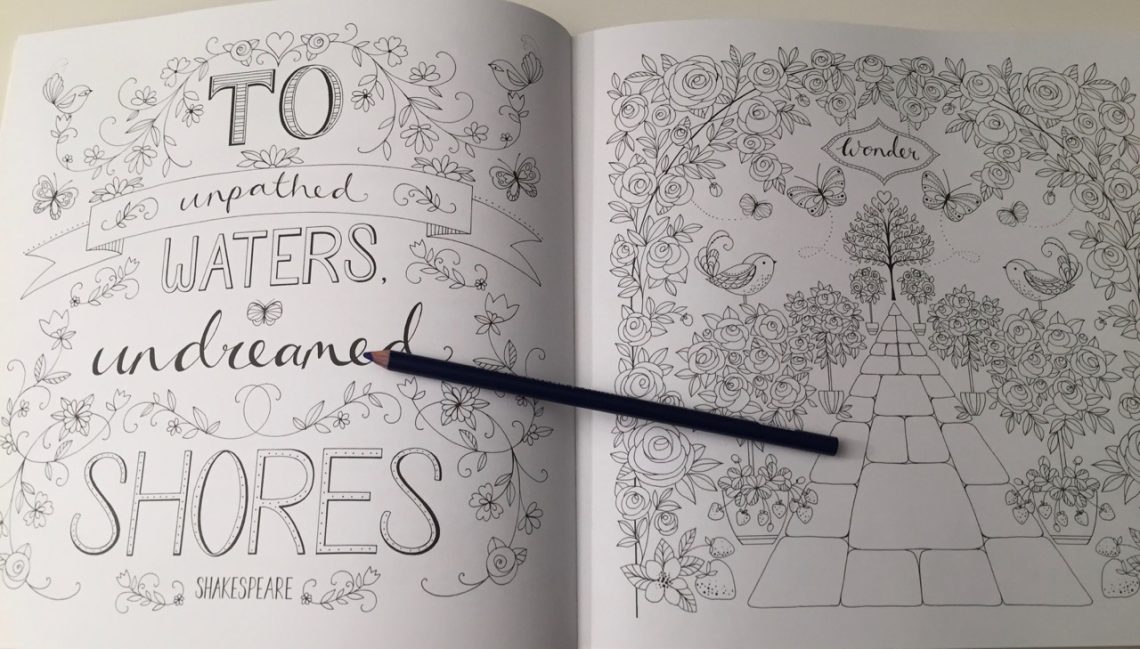 TO
unpathed
WATERS,
undreamed
SHORES
SHAKESPEARE
wonder